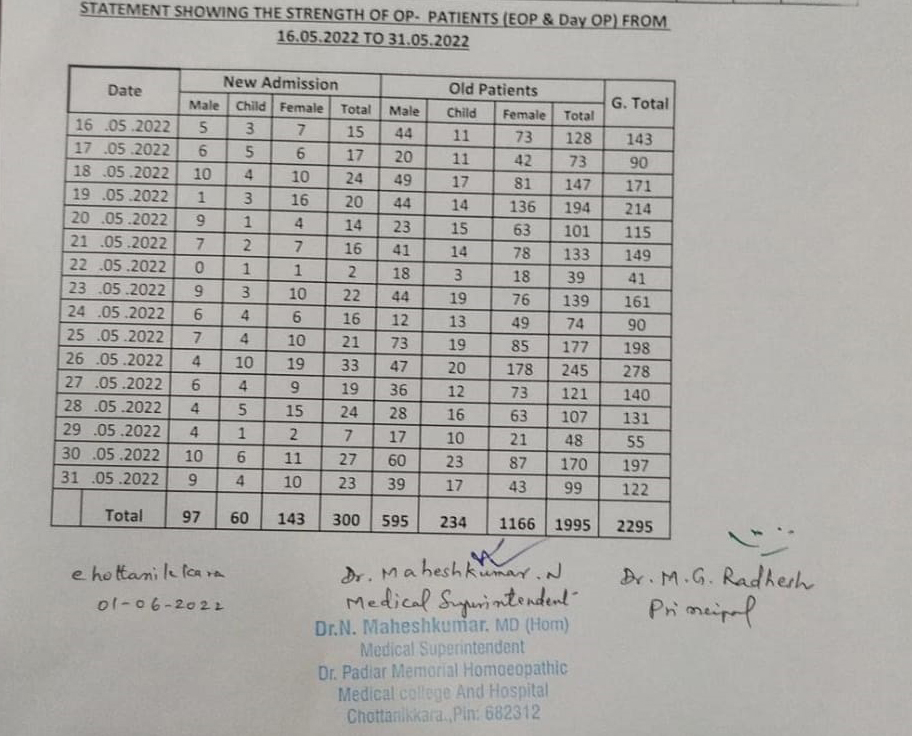 STATEMENT SHOWING THE STRENGTH OF OP- PATIENTS (EOP & Day OP) FROM
16.05.2022 TO 31.05.2022
Date New Admission Old Patients G. Total
Male Child Female Total Male Child Female Total
16 .05 .2022 5 3 7 15 44 11 73 128 143
17 .05 .2022 6 5 6 17 20 11 42 73 90
18 .05 .2022 10 4 10 24 49 17 81 147 171
19 .05 .2022 1 3 16 20 44 14 136 194 214
20 .05 .2022 9 1 4 14 23 15 63 101 115
21 .05 .2022 7 2 7 16 41 14 78 133 149
22 .05 .2022 0 1 1 2 18 3 18 39 41
23 .05 .2022 9 3 10 22 44 19 76 139 161
24 .05 .2022 6 4 6 16 12 13 49 74 90
25 .05 .2022 7 4 10 21 73 19 85 177 198
26 .05 .2022 4 10 19 33 47 20 178 245 278
27 .05 .2022 6 4 9 19 36 12 73 121 140
28 .05 .2022 4 5 15 24 28 16 63 107 131
29 .05 .2022 4 1 2 7 17 10 21 48 55
30 .05 .2022 10 6 11 27 60 23 87 170 197
31 .05 .2022 9 4 10 23 39 17 43 99 122
Total 97 60 143 300 595 234 1166 1995 2295
chottanikkara Dr. Maheshkumar. N Dr. M. G. Radhesh
01-06-2022 Medical Superintendent Principal
Dr.N. Maheshkumar. MD (Hom)
Medical Superintendent
Dr. Padiar Memorial Homoeopathic
Medical college And Hospital
Chottanikkara.,Pin: 682312